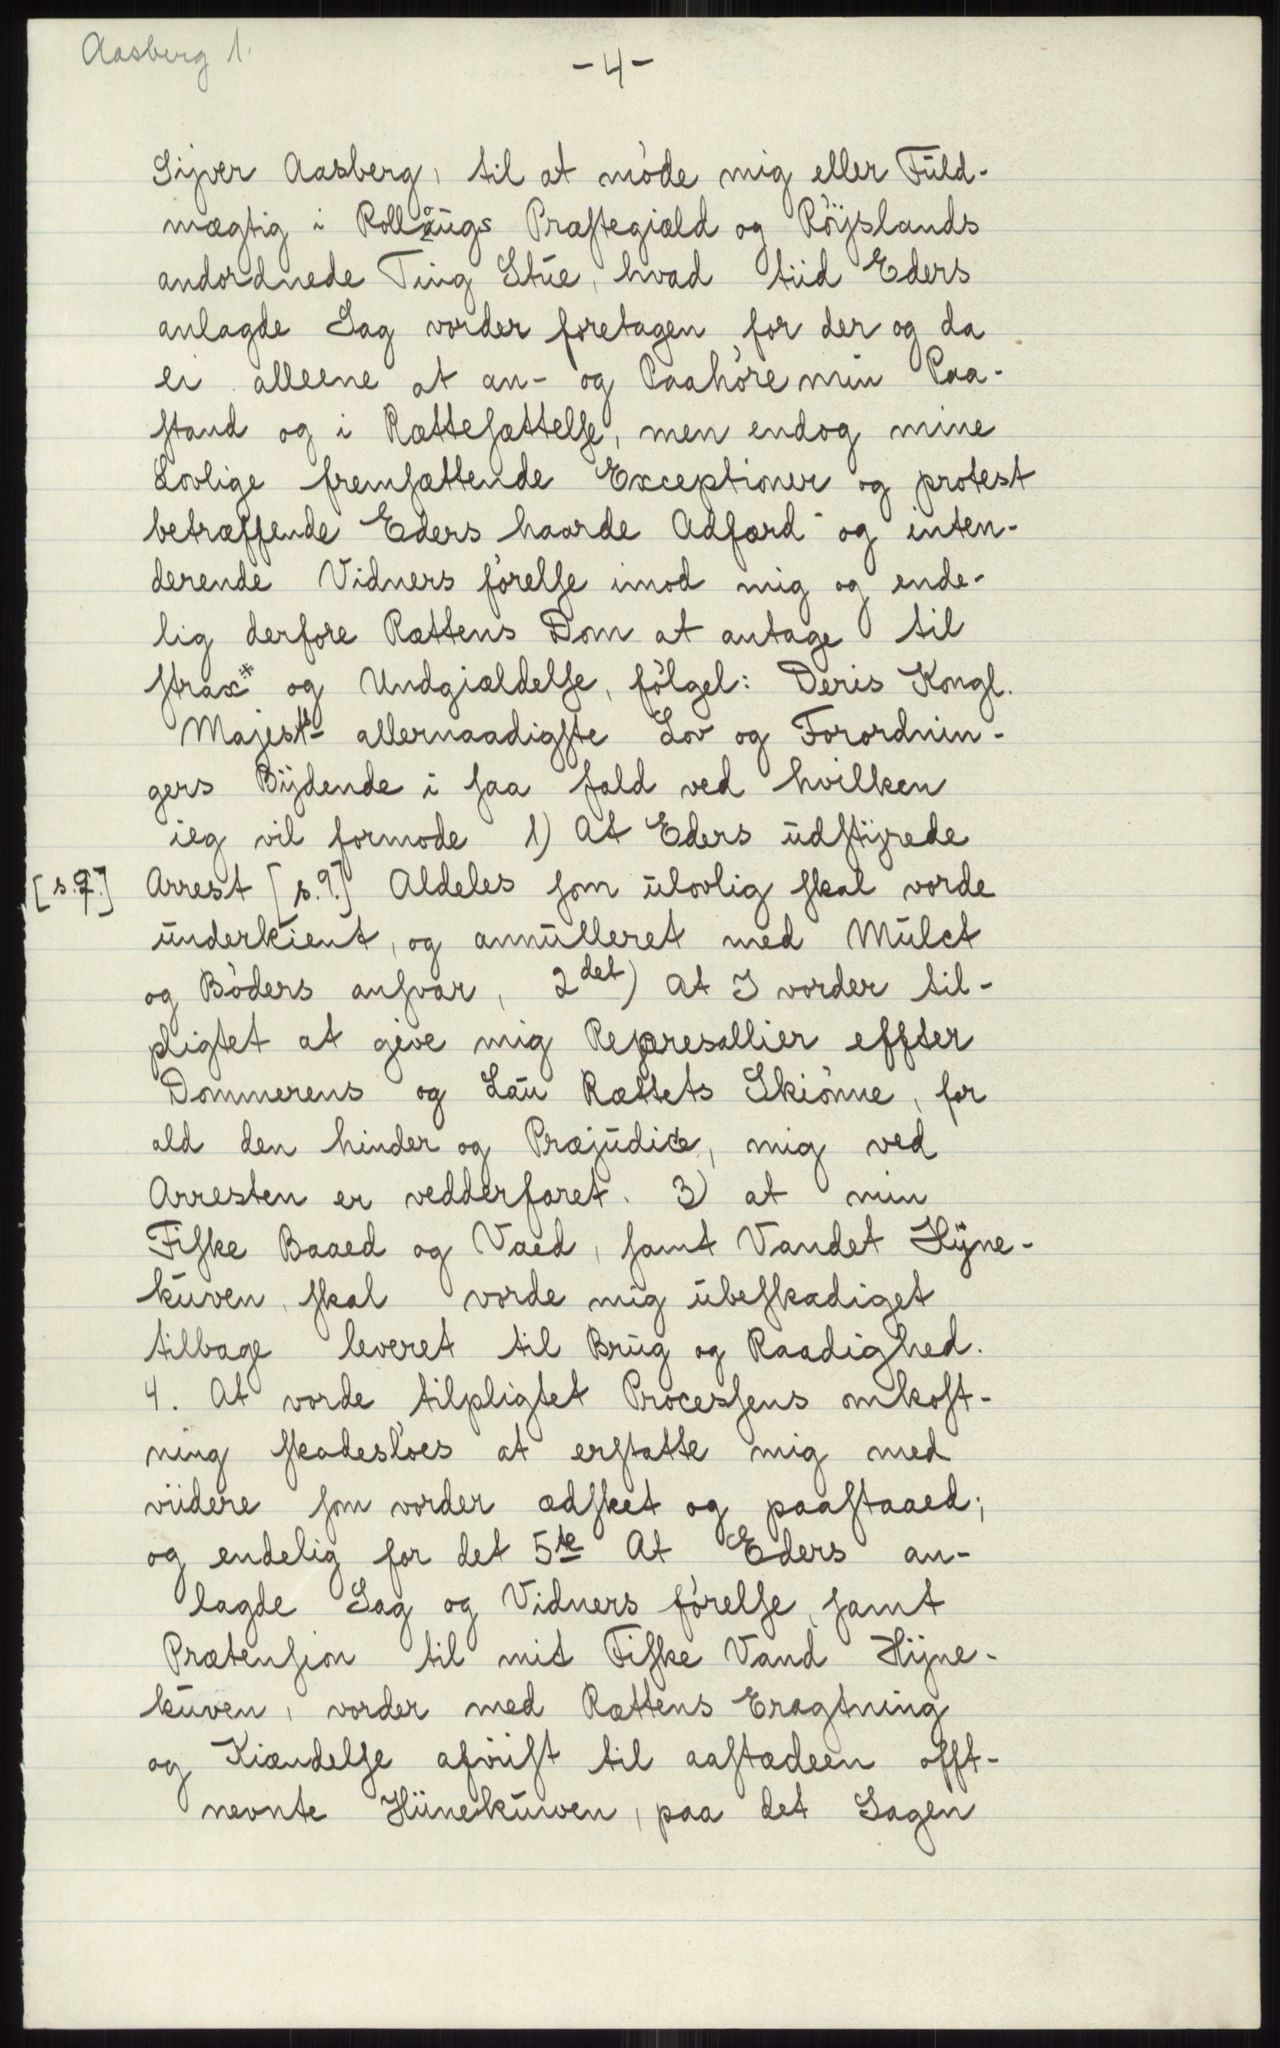 Aasberg 1.
- 4 -
Sijver Aasberg, til at møde mig eller Fuld-
mægtig i Rollaugs Præstegiæld og Røÿslands
andordnede Ting Stue, hvad tiid Eders
anlagde Sag vorder foretagen for der og da
ei alleene at an- og Paahøre min Paa-
stand og i Rættesættelse, men endog mine
Lovlige fremsættende Exceptioner og protest
betræffende Eders haarde Adfærd og inten-
derende Vidners førelse imod mig og ende-
lig derfore Rættens Dom at antage til
strax* og Undgiældelse, følgel: Deris Kongl.
Majestts allernaadigste Lov og Forordnin-
gers Bÿdende i saa fald ved hvilken
ieg vil formode 1) At Eders udstÿrede
[s.9.] Arrest [s.9.] Aldeles som ulovlig skal vorde
underkient, og annulleret med Mulct
og Bøders ansvar, 2det) At I vorder til-
pligtet at give mig Repræsallier effter
Dommerens og Lau Rættets Skiønne, for
ald den hinder og Præjudice, mig ved
Arresten er vedderfaret. 3) at min
Fiske Baaed og Vaed, samt Vandet Hÿne-
kuven, skal vorde mig ubeskadiget
tilbage leveret til Brug og Raadighed.
4. At vorde tilpligtet Processens omkost-
ning skadesløes at erstatte mig med
viidere som vorder ædsket og paastaaed;
og endelig for det 5te At Eders an-
lagde Sag og Vidners førelse, samt
Prætension til mit Fiske Vand Hijne-
kuven, vorder med Rættens Eragtning
og Kiændelse afviist til aastædeen offt-
nevnte Hiinekuven, paa det Sagen